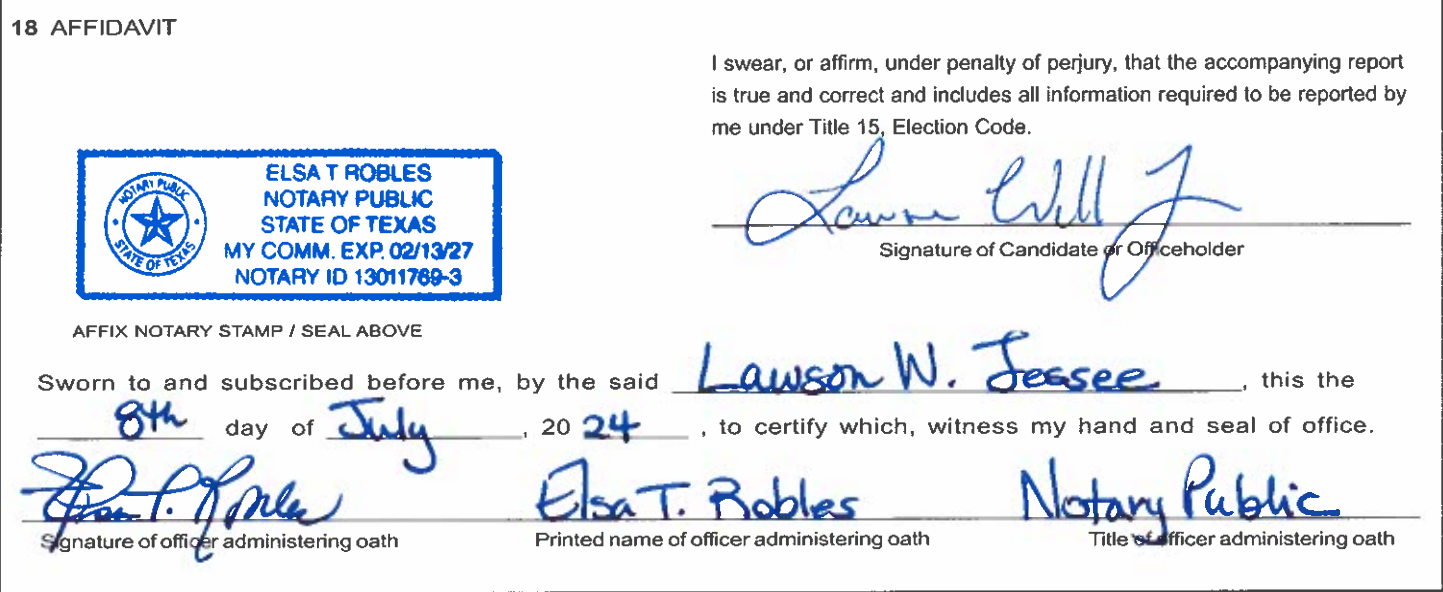 18 AFFIDAVIT
I swear, or affirm, under penalty of perjury, that the accompanying report
is true and correct and includes all information required to be reported by
me under Title 15, Election Code.
NOTARY PUBLIC
STATE OF TEXAS
ELSA T ROBLES
NOTARY PUBLIC
STATE OF TEXAS
MY COMM. EXP. 02/13/27
NOTARY ID 13011769-3
Signature of Candidate or Officeholder
AFFIX NOTARY STAMP / SEAL ABOVE
Sworn to and subscribed before me, by the said Lawson W. Jessee, this the
8th day of July, 20 24, to certify which, witness my hand and seal of office.
Elsa T. Robles Elsa T. Robles Notary Public
Signature of officer administering oath Printed name of officer administering oath Title of officer administering oath